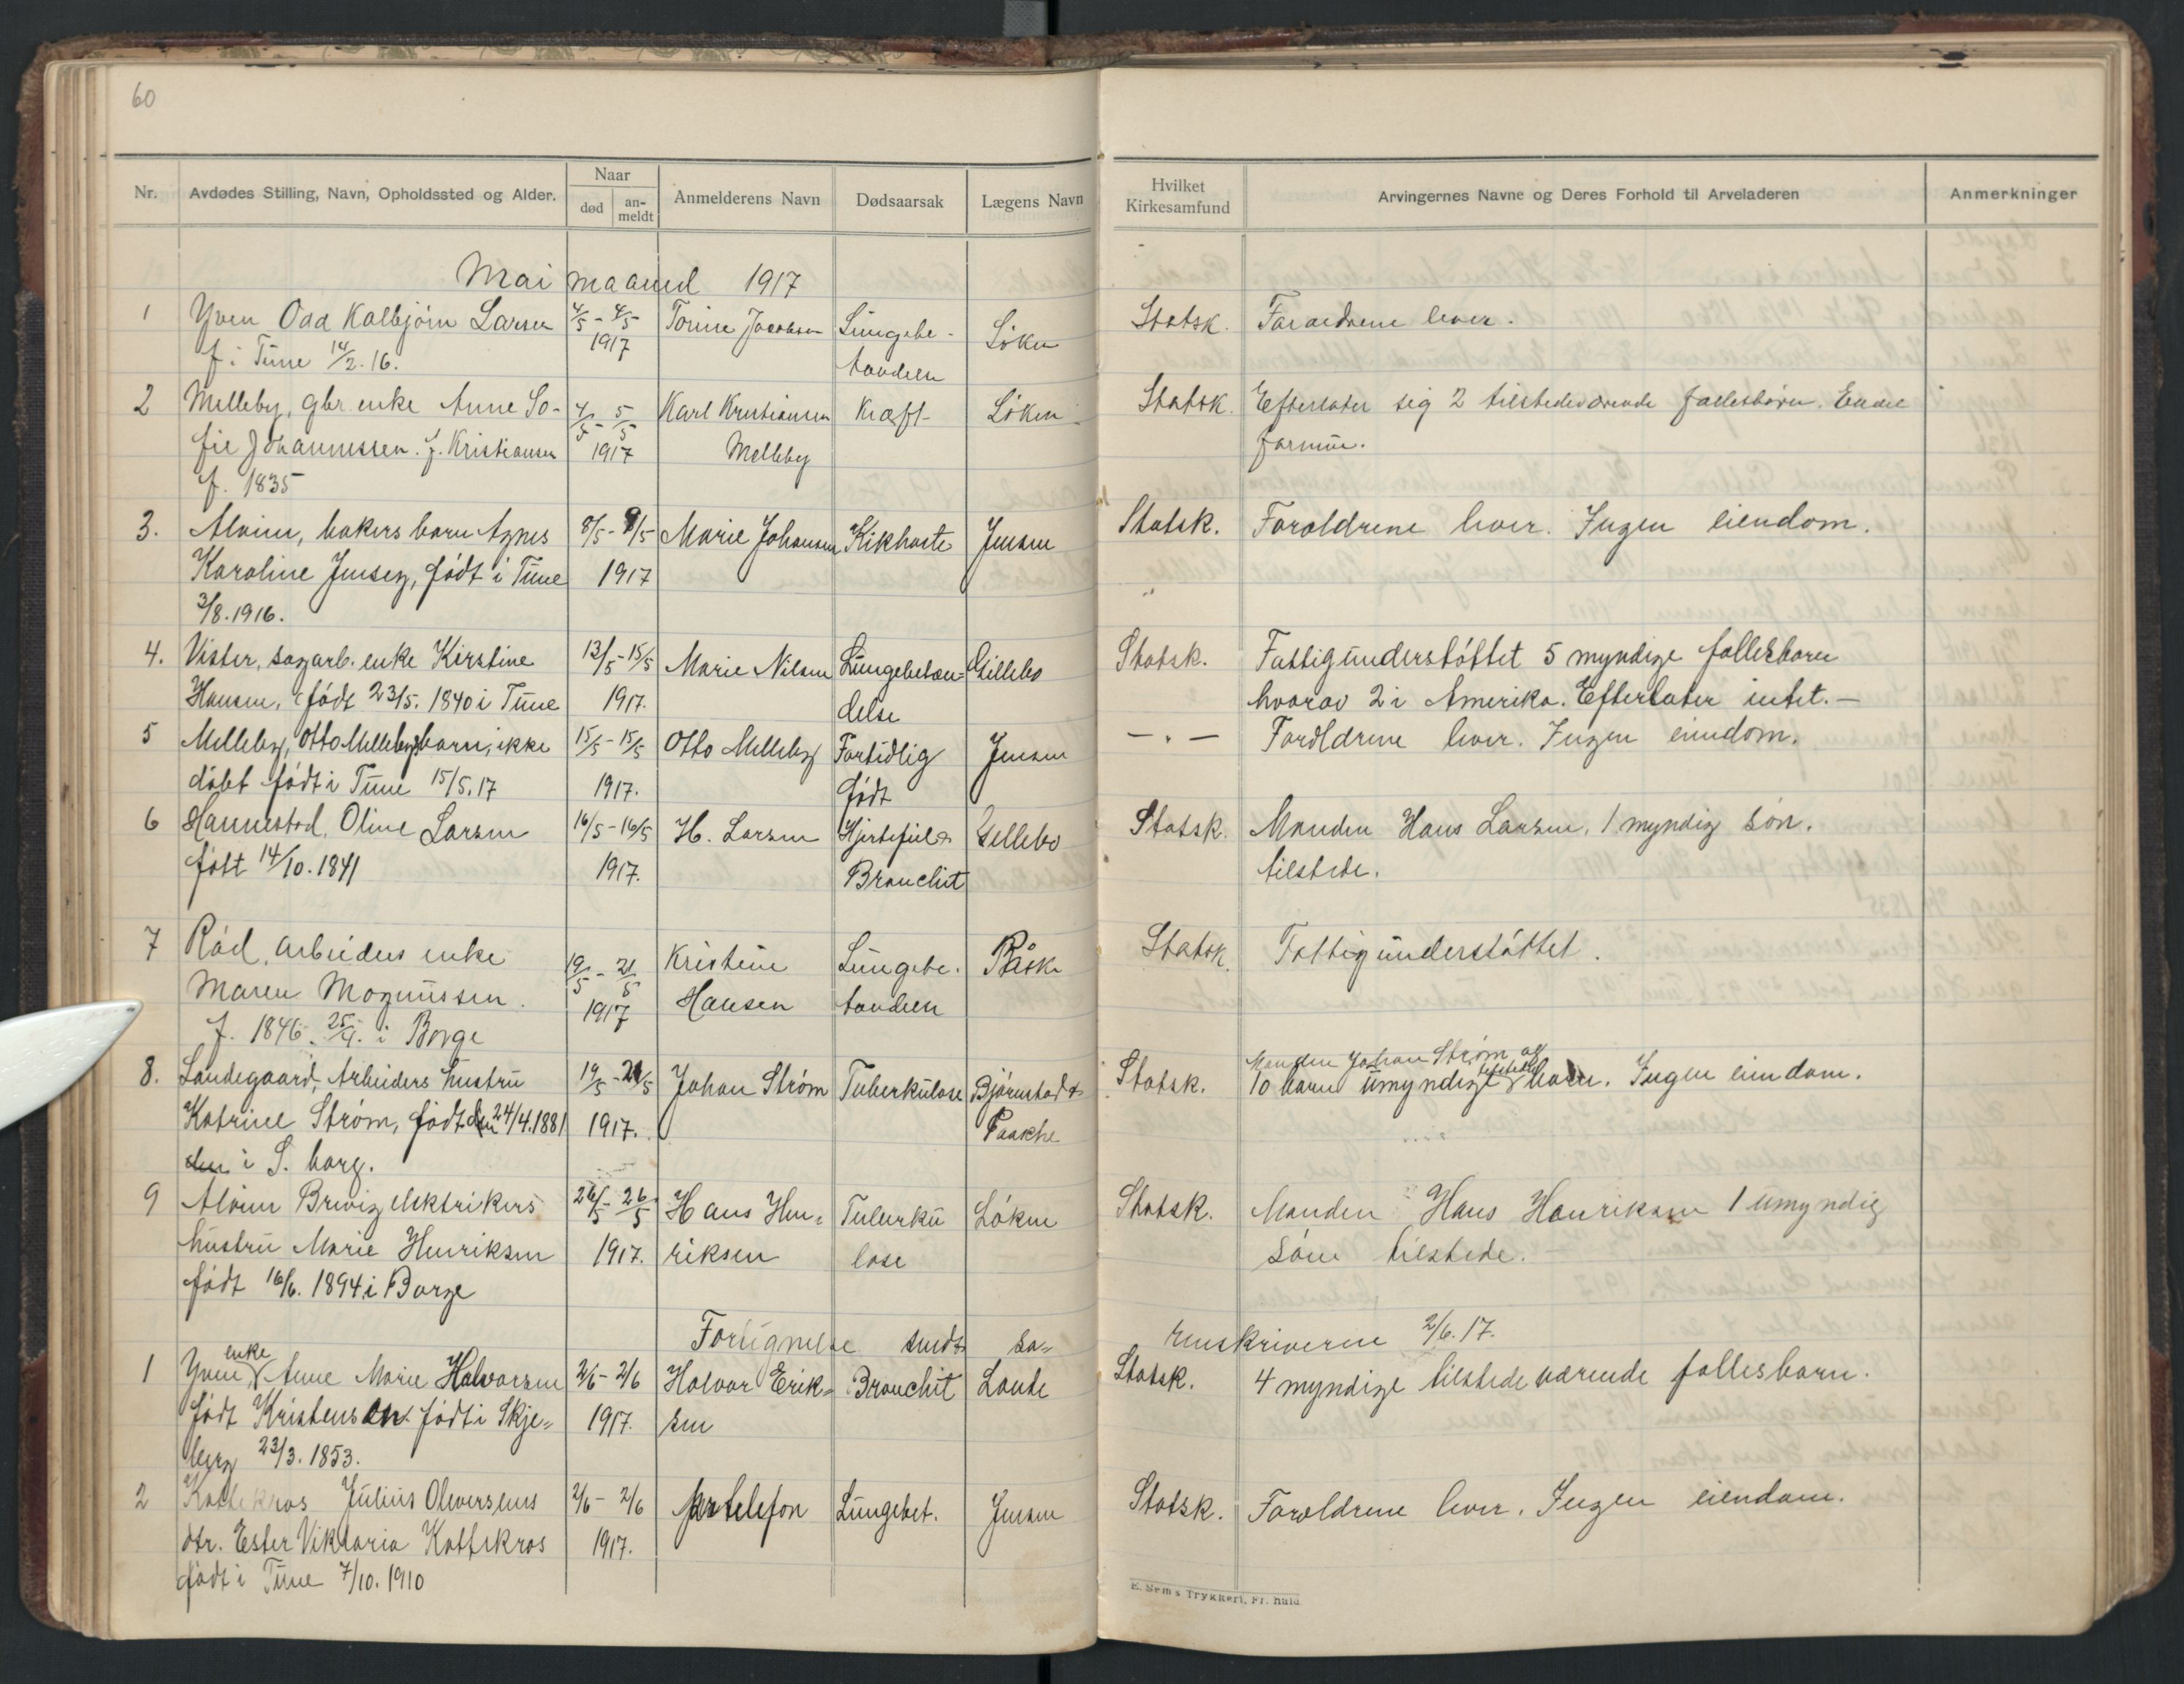 60
Nr. Avdødes Stilling, Navn, Opholdssted og Alder. Naar død an-meldt Anmelderens Navn Dødsaarsak Lægens Navn Hvilket Kirkesamfund Arvingernes Navne og Deres Forhold til Arveladeren Anmerkninger
Mai maaned 1917
1 Yven Odd Kolbjørn Larsen 4/5 - 4/5 Torine Jacobsen Lungebe- Løken Statsk. Foraeldrene lever.
f. i Tune 14/2. 16. 1917 tændelse
2 Melleby, gbr. enke Anne So- 4/5 - 5/5 Karl Kristiansen Kræft Løken Statsk. Efterlater sig 2 tilstedeværende fællesbørn. Endel
fie Johannessen. f. Kristiansen 1917 Melleby formue.
f. 1835
3. Alvim, bakers barn Agnes 8/5 - 9/5 Marie Johansen Kikhoste Jensen Statsk. Forældrene lever. Ingen eiendom.
Karoline Jensen, født i Tune 1917
3/8. 1916.
4. Vister, sagarb. enke Kirstine 13/5 - 15/5 Marie Nilsen Lungebetæn= Gillebo Statsk. Fattigunderstøttet 5 myndige fællesbarn
Hansen, født 23/5. 1840 i Tune 1917. delse hvorav 2 i Amerika. Efterlater intet. —
5 Melleby, Otto Mellebys barn, ikke 15/5 - 15/5 Otto Melleby Fortidlig Jensen — " — Forældrene lever. Ingen eiendom.
døbt født i Tune 15/5. 17 1917. født
6 Hannestad, Oline Larsen 16/5 - 16/5 H. Larsen Hjertefeil & Gillebo Statsk. Manden Hans Larsen, 1 myndig søn.
født 14/10. 1841 1917. Bronchit tilstede.
7 Råd, arbeiders enke 19/5 - 21/5 Kristine Lungebe. Påske Statsk. Fattigunderstøttet.
Maren Magnussen. 1917 Hansen tændelse
f. 1846. 25/4. i Borge
8. Landegaard, Arbeiders hustru 19/5 - 21/5 Johan Strøm Tuberkulose Bjørnstad & Statsk. Manden Johan Strøm og
10 barn umyndige tilstede. Ingen eiendom.
Katrine Strøm, født den 24/4. 1881 1917. Paaske
den i S. borg.
9 Alvim Brevig elektrikers 26/5 - 26/5 Hans Hen= Tuberku Løken Statsk. Manden Hans Henriksen 1 umyndig
hustru Marie Henriksen 1917. riksen lose søn tilstede.
født 16/6. 1894 i Borge
Fortegnelse sendt so= renskriveren 2/6. 17.
1 Yven, enke Anne Marie Halvorsen 2/6 - 2/6 Halvor Erik= Bronchit Lande Statsk. 4 myndige tilstedeværende fællesbarn.
født Kristensen. født i Skje= 1917. sen
berg 23/3. 1853.
2 Kattekras Julius Oliversens 2/6 - 2/6 pr telefon Lungebet. Jensen Statsk. Forældrene lever. Ingen eiendom.
dtr. Ester Viktoria Kattekras 1917.
født i Tune 7/10. 1910
E. Sems Trykkeri, Fr. hald